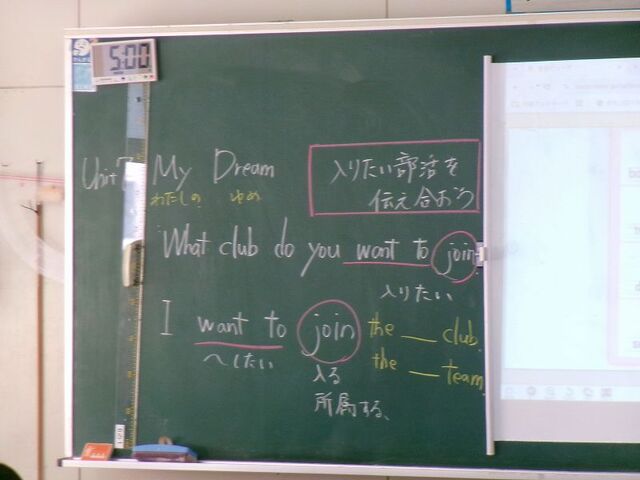 5:00
Unit 7 My Dream
わたしの ゆめ
入りたい部活を
伝え合おう
What club do you want to join
入りたい
I want to join the __ club.
〜したい
the __ team.
入る
所属する、